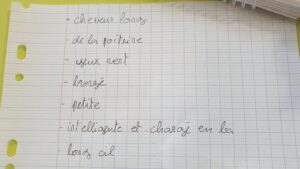 - cheveux longs
- de la poitrine
- yeux vert
- bronzé
- petite
- intelligente et chargé en ba
- longs cil